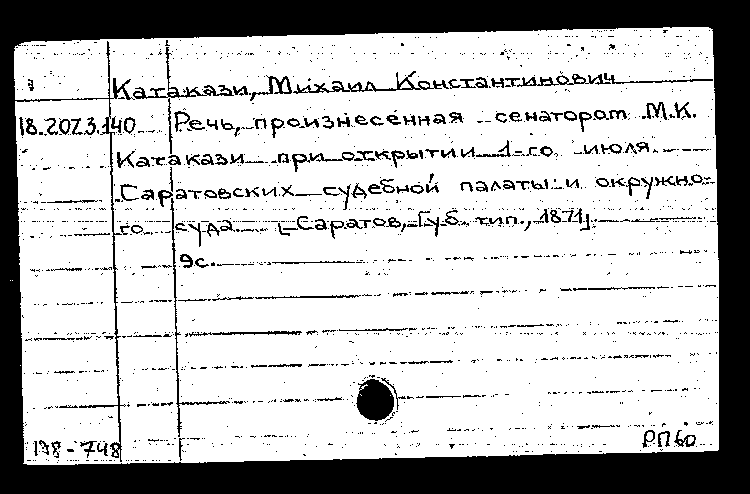 Катакази, Михаил Константинович
18.207.3.140 Речь, произнесенная сенатором М.К.
Катакази при открытии 1-го июля
Саратовских судебной палаты и окружно-
го суда [Саратов, Губ. тип., 1871].
9с.
198-748 РП 60